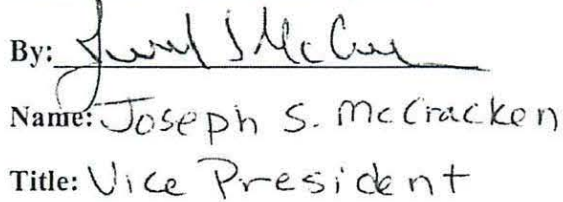 By:
Name: Joseph S. McCracken
Title: Vice President